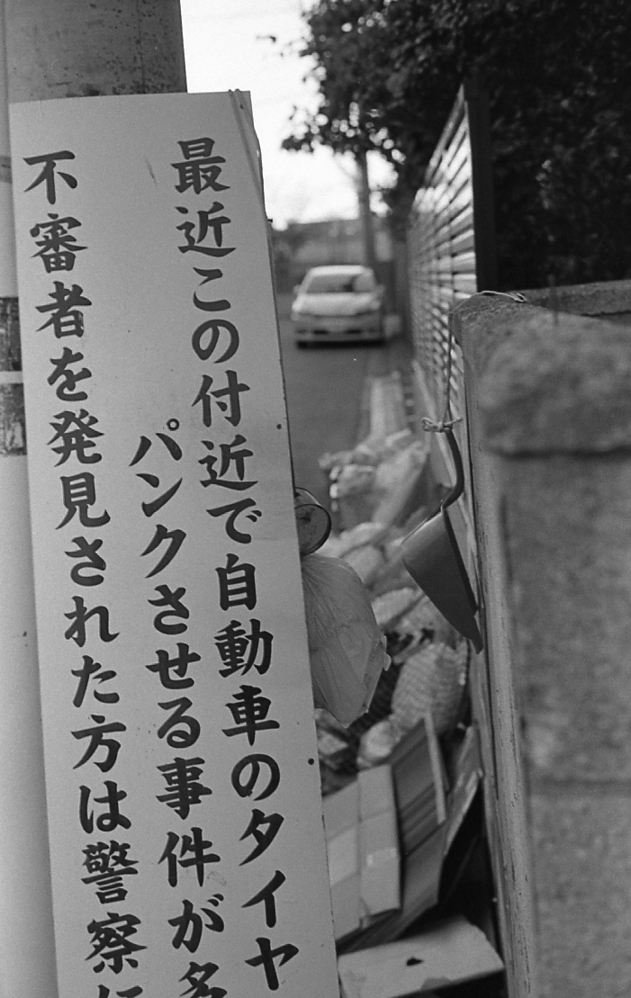 最近この付近で自動車のタイヤ
パンクさせる事件が多
不審者を発見された方は警察に